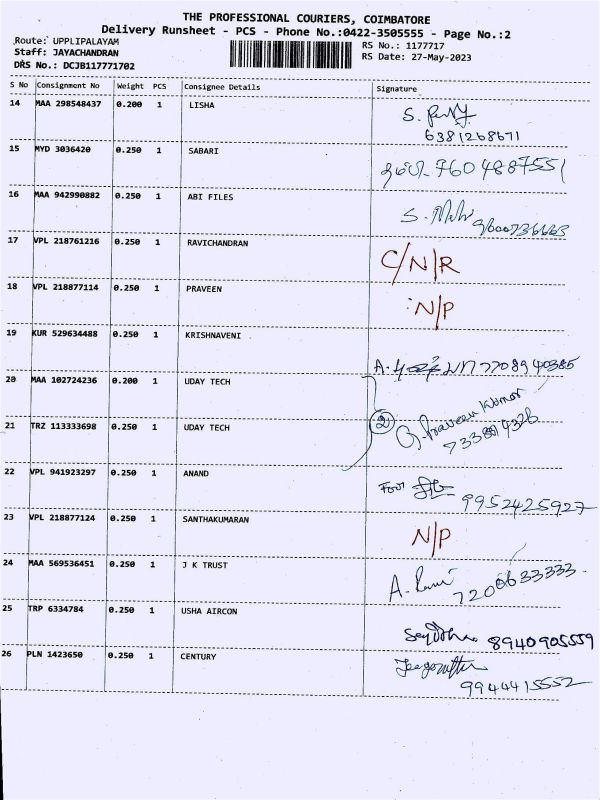 THE PROFESSIONAL COURIERS, COIMBATORE
Delivery Runsheet - PCS - Phone No.:0422-3505555 - Page No.:2
Route: UPPLIPALAYAM
RS No.: 1177717
Staff: JAYACHANDRAN
RS Date: 27-May-2023
DRS No.: DCJB117771702
S No Consignment No Weight PCS Consignee Details Signature
14 MAA 298548437 0.200 1 LISHA
6381268671
15 MYD 3036420 0.250 1 SABARI 7604887551
16 MAA 942990882 0.250 1 ABI FILES S.
17 VPL 218761216 0.250 1 RAVICHANDRAN C/N/R
18 VPL 218877114 0.250 1 PRAVEEN N/P
19 KUR 529634488 0.250 1 KRISHNAVENI
7708940385
20 MAA 102724236 0.200 1 UDAY TECH
2 G.Praveen Kumar
21 TRZ 113333698 0.250 1 UDAY TECH
22 VPL 941923297 0.250 1 ANAND
9952425927
23 VPL 218877124 0.250 1 SANTHAKUMARAN N/P
24 MAA 569536451 0.250 1 J K TRUST
A. Rami 7200633333
25 TRP 6334784 0.250 1 USHA AIRCON
8940905559
26 PLN 1423650 0.250 1 CENTURY
9944415552